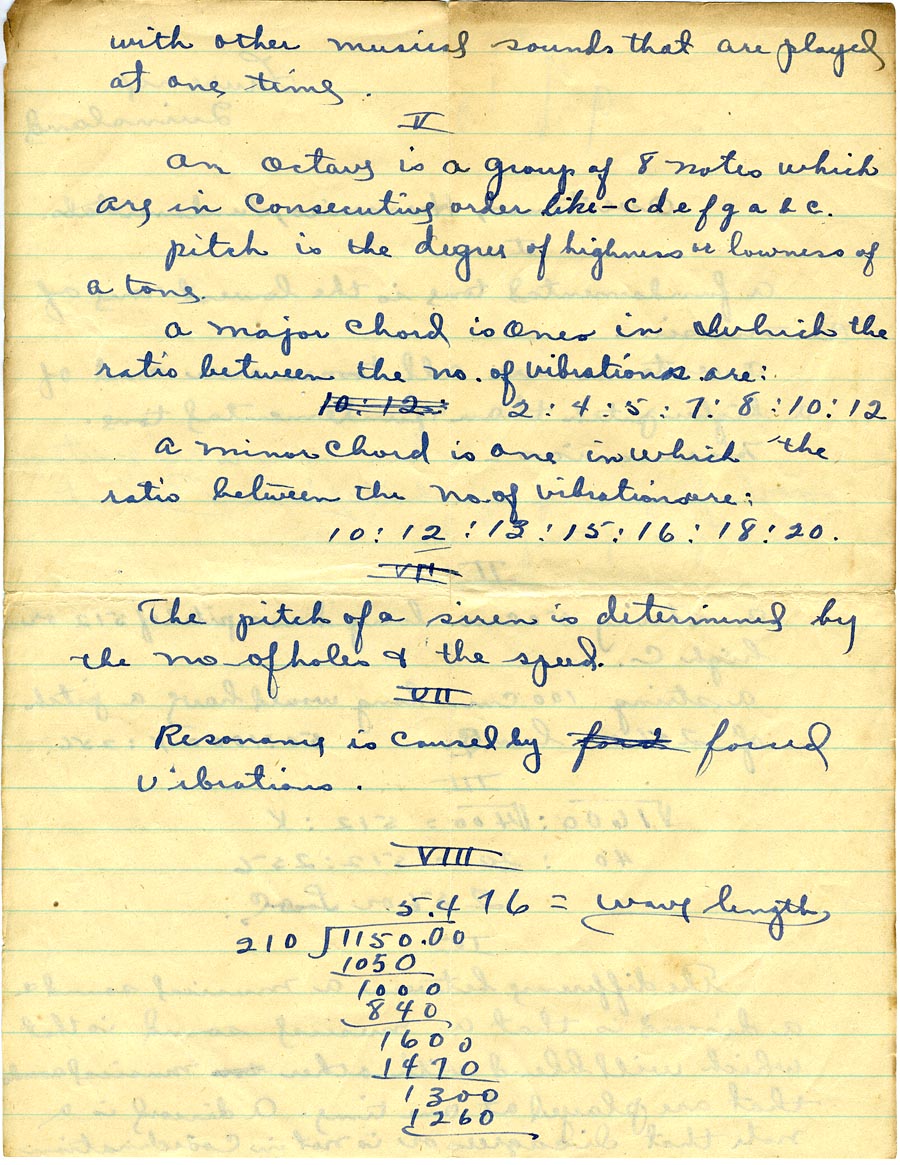 with other musical sounds that are played
at one time.
V
An Octave is a group of 8 notes which
are in consecutive order like - c d e f g a b c.
pitch is the degree of highness or lowness of
a tone.
A major chord is one in which the
ratio between the no. of vibrations are:
10:12: 2:4:5:7:8:10:12
A minor chord is one in which the
ratio between the no. of vibrations are:
10:12:13:15:16:18:20.
VII
The pitch of a siren is determined by
the no. of holes & the speed.
VII
Resonance is caused by forced
vibrations.
VIII
5.476 = wave length
210 1150.00
1050
1000
840
1600
1470
1300
1260